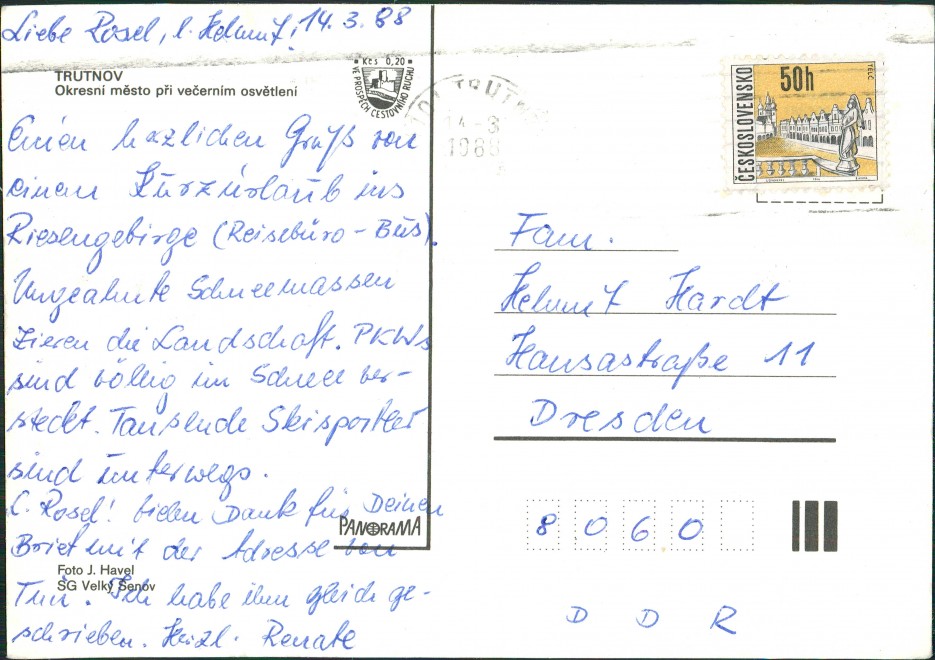 Liebe Rosel, l. Helmut! 14.3.88
TRUTNOV
Okresní město při večerním osvětlení
Kčs 0,20
VE PROSPĚCH CESTOVNÍHO RUCHU
Einen herzlichen Gruß von
einem Kurzurlaub ins
Riesengebirge (Reisebüro - Bus).
Ungeahnte Schneemassen
zieren die Landschaft. PKWs
sind völlig im Schnee ver-
steckt. Tausende Skisportler
sind unterwegs.
L. Rosel! Vielen Dank für Deinen
Brief mit der Adresse von
Tun. Ich habe ihm gleich ge-
schrieben. Herzl. Renate
PANORAMA
Foto J. Havel
SG Velký Šenov
TRUTNOV
14.-3
1988
ČESKOSLOVENSKO
50h
TELČ
Fam.
Helmut Hardt
Hansastraße 11
Dresden
8060
DDR